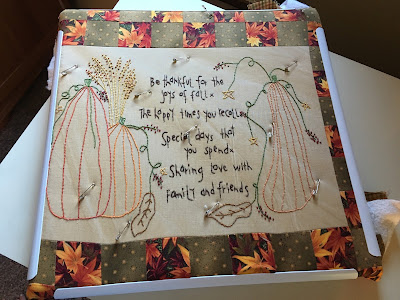 Be thankful for the
joys of fall x
The happy times you recall x
Special days that
you spend x
Sharing love with
family and friends